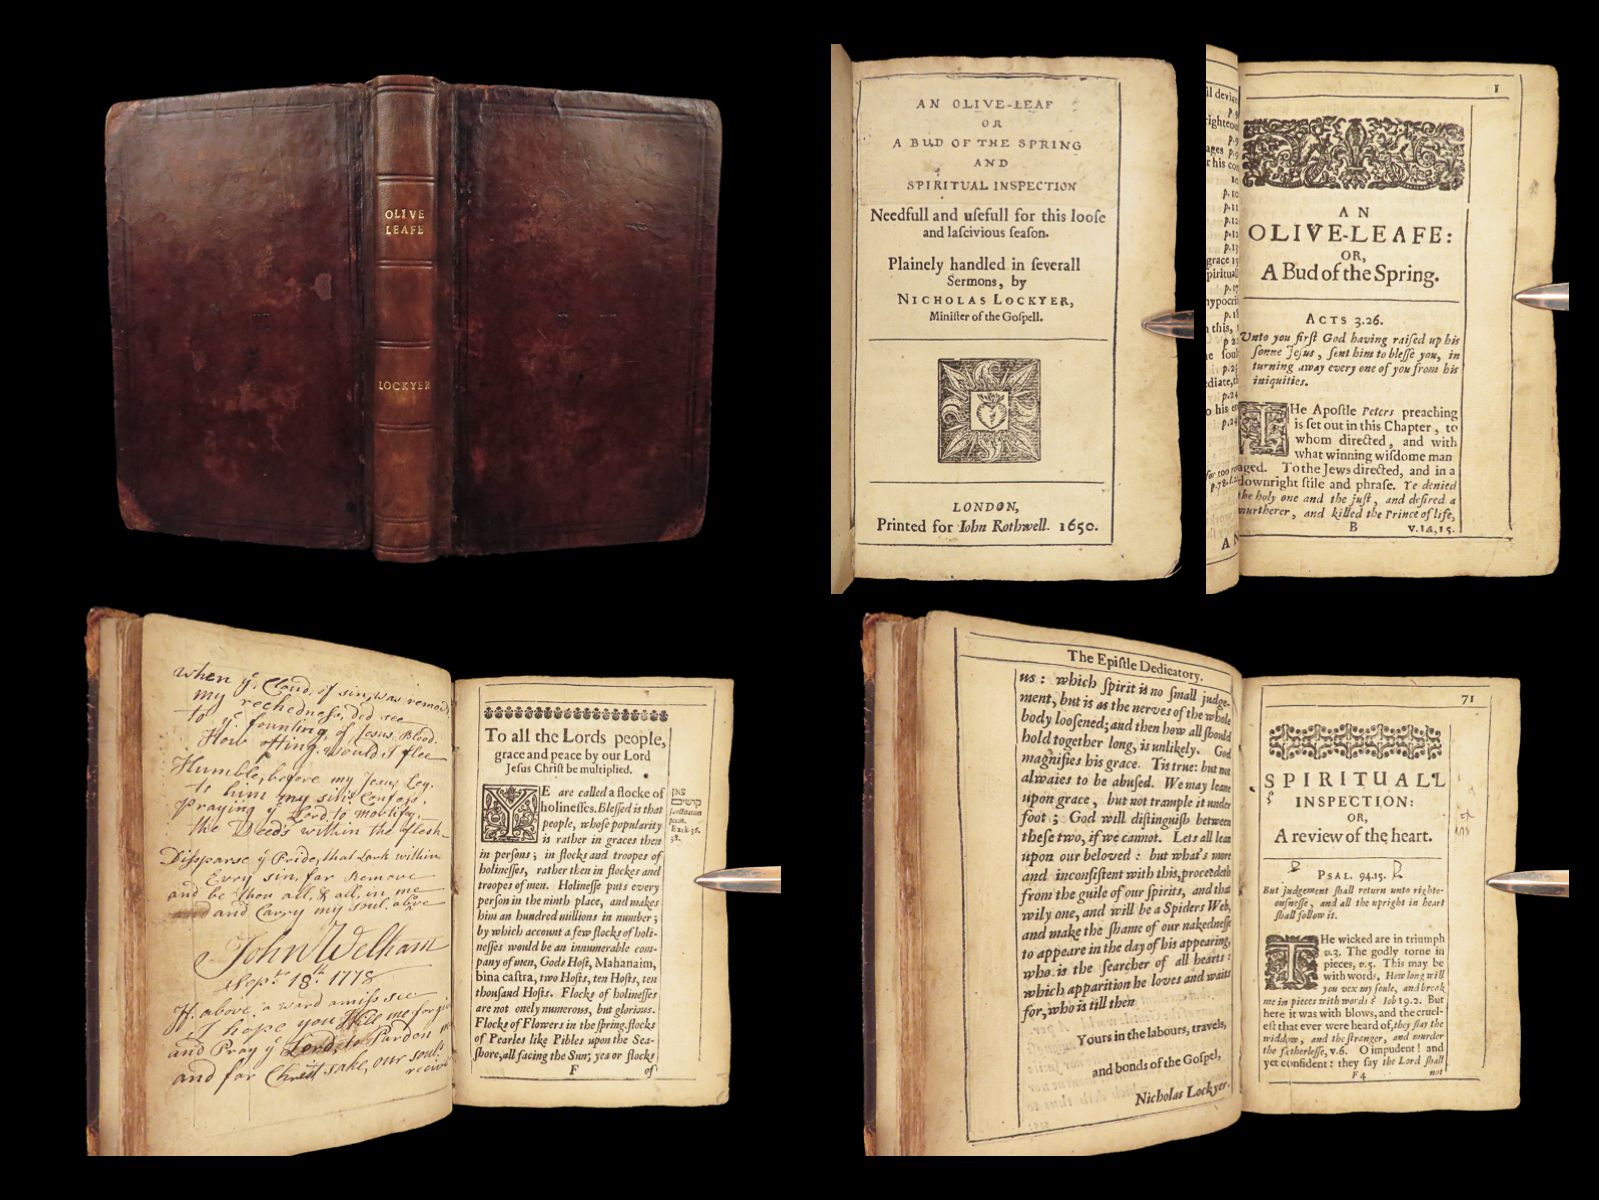 OLIVE
LEAFE
LOCKYER
AN OLIVE-LEAF
OR
A BUD OF THE SPRING
AND
SPIRITUAL INSPECTION
Needfull and uſefull for this looſe
and laſcivious ſeaſon.
Plainely handled in ſeverall
Sermons, by
NICHOLAS LOCKYER,
Miniſter of the Goſpell.
LONDON,
Printed for Iohn Rothwell. 1650.
1
AN
OLIVE-LEAFE:
OR,
A Bud of the Spring.
ACTS 3.26.
Unto you firſt God having raiſed up his
ſonne Jeſus, ſent him to bleſſe you, in
turning away every one of you from his
iniquities.
THe Apoſtle Peters preaching
is ſet out in this Chapter, to
whom directed, and with
what winning wiſdome man
aged. To the Jews directed, and in a
downright ſtile and phraſe. Ye denied
the holy one and the juſt, and deſired a
murtherer, and killed the Prince of life,
B v.14,15.
when ye Cloud, of sin, was remov
my rechedness, ded see
to ye founting, of Jesus Blood.
How often would I flee
Humble, before my Jesus Leg.
to him my sins Confess,
praying ye Lord to mortify,
the Deeds within the flesh
Dissparse ye Pride, that Lark within
Evry sin, far Remove
and be thou all, & all, in me
and Carry my soul above
John Welham
Sept. 18th 1778
If above, a word amiss see
I hope you Will me forgive
and Pray ye Lord, to Pardon me
and for Christ sake, our souls
recive
To all the Lords people,
grace and peace by our Lord
Jeſus Chriſt be multiplied.
YE are called a flocke of
holineſſes. Bleſſed is that
people, whoſe popularity
is rather in graces then
in perſons; in flocks and troopes of
holineſſes, rather then in flockes and
troopes of men. Holineſſe puts every
perſon in the ninth place, and makes
him an hundred millions in number;
by which account a few flocks of holi-
neſſes would be an innumerable com-
pany of men, Gods Hoſt, Mahanaim,
bina caſtra, two Hoſts, ten Hoſts, ten
thouſand Hoſts. Flocks of holineſſes
are not onely numerous, but glorious.
Flocks of Flowers in the ſpring, flocks
of Pearles like Pibles upon the Sea-
ſhore, all facing the Sun; yea or flocks
F of
צאן
קדשים
Ezek.36.
38.
The Epiſtle Dedicatory.
us: which ſpirit is no ſmall judge-
ment, but is as the nerves of the whole
body looſened; and then how all ſhould
hold together long, is unlikely. God
magnifies his grace. Tis true: but not
alwaies to be abuſed. We may leane
upon grace, but not trample it under
foot; God will diſtinguiſh between
theſe two, if we cannot. Lets all lean
upon our beloved: but what's more
and inconſiſtent with this, proceedeth
from the guile of our ſpirits, and that
wily one, and will be a Spiders Web,
and make the ſhame of our nakedneſſe
to appeare in the day of his appearing,
who is the ſearcher of all hearts:
which apparition he loves and waits
for, who is till then
Yours in the labours, travels,
and bonds of the Goſpel,
Nicholas Lockyer.
71
SPIRITUALL
INSPECTION:
OR,
A review of the heart.
PSAL. 94.15.
But judgement ſhall return unto righte-
ouſneſſe, and all the upright in heart
ſhall follow it.
THe wicked are in triumph
v.3. The godly torne in
pieces, v.5. This may be
with words, How long will
you vex my ſoule, and break
me in pieces with words? Iob 19.2. But
here it was with blows, and the cruel-
eſt that ever were heard of, they ſlay the
widdow, and the ſtranger, and murder
the fatherleſſe, v.6. O impudent! and
yet confident: they ſay the Lord ſhall
F 4 not